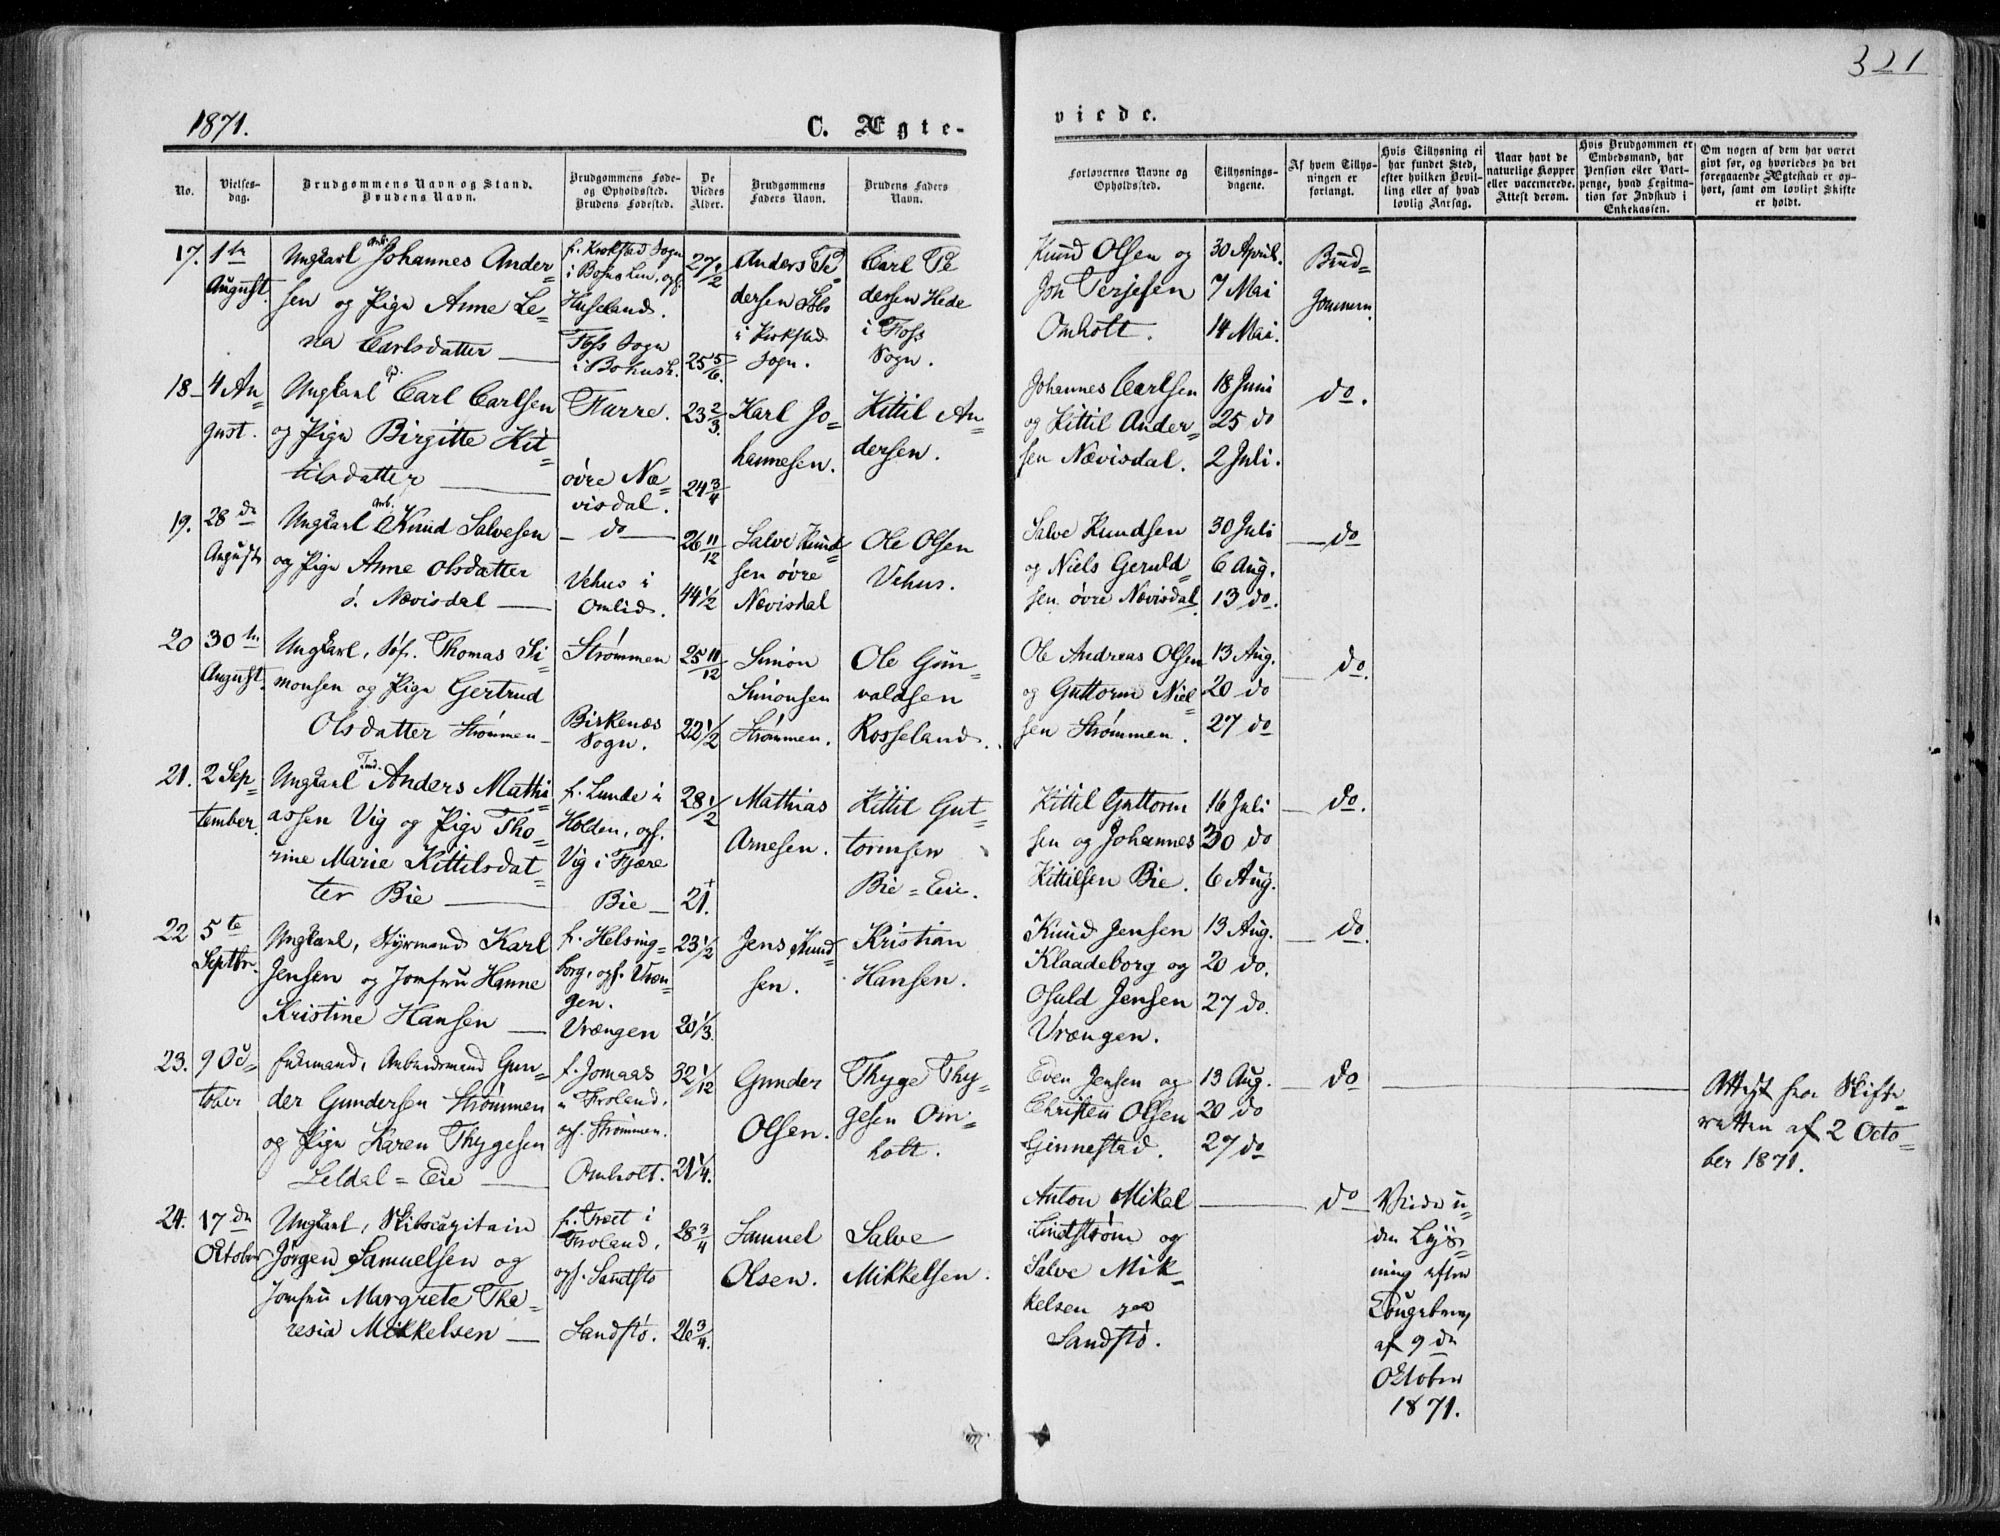 321
1871.
C. Ægte-
viede.
No.
Vielses-
dag.
Brudgommens Navn og Stand.
Brudens Navn.
Brudgommens Føde-
og Opholdssted.
Brudens Fødested.
De
Viedes
Alder.
Brudgommens
Faders Navn.
Brudens Faders
Navn.
Forlovernes Navne og
Opholdssted.
Tillysnings-
dagene.
Af hvem Tillys-
ningen er
forlangt.
Hvis Tillysning ei
har fundet Sted,
efter hvilken Bevil-
ling eller af hvad
lovlig Aarsag.
Naar havt de
naturlige Kopper
eller vaccinerede.
Attest derom.
Hvis Brudgommen er
Embedsmand, har
Pension eller Vart-
penge, hvad Legitma-
tion for Indskud i
Enkekassen.
Om nogen af dem har været
givt før, og hvorledes da det
foregaaende Ægteskab er op-
hørt, samt om lovligt Skifte
er holdt.
17. 1ste
August.
Ungkarl Arb. Johannes Ander-
sen og Pige Anne Le-
na Carlsdatter
f. Krokstad Sogn
i Bohus Len, oph.
Huseland.
Foss Sogn
i Bohusl.
27 1/2
25 5/6.
Anders Pe-
dersen
i Krokstad
Sogn.
Carl Pe
dersen Hede
i Foss
Sogn.
Knud Olsen og
Joh Terjesen
Omholt.
30 April.
7 Mai
14 Mai.
Brud-
gommen.
18 4 Au-
gust.
Ungkarl Carl Carlsen
og Pige Birgitte Kit-
tilsdatter
Furre.
øvre Næ-
visdal.
23 2/3.
24 3/4
Karl Jo-
hannesen.
Kittil An-
dersen.
Johannes Carlsen
og Kittil Ander-
sen Nævisdal.
18 Juni
25 do
2 Juli.
do.
19. 28de
August
Ungkarl Arb. Knud Salvesen
og Pige Anne Olsdatter
ø. Nævisdal
do
Vehus i
Omlid.
26 11/12
44 1/2
Salve Knud-
sen øvre
Nævisdal
Ole Olsen
Vehus.
Salve Knudsen
og Niels Geruld-
sen øvre Nævisdal.
30 Juli
6 Aug.
13 do.
do
20 30te
August.
Ungkarl, Søf. Thomas Si-
monsen og Pige Gertrud
Olsdatter Strømmen
Strømmen
Birkenæs
Sogn.
25 11/12
22 1/2
Simon
Simonsen
Strømmen.
Ole Gun-
valdsen
Rosseland.
Ole Andreas Olsen
og Guttorm Niel-
sen Strømmen.
13 Aug.
20 do
27 do
do.
21. 2 Sep-
tember.
Ungkarl Tmd. Anders Mathi-
assen Vig og Pige Tho-
rine Marie Kittilsdat-
ter Bie
f. Lunde i
Holden, oph.
Vig i Fjære
Bie
28 1/2
21.
Mathias
Arnesen.
Kittil Gut-
tormsen
Bie-Eie.
Kittil Guttorm
sen og Johannes
Kittilsen Bie.
16 Juli
30 do
6 Aug.
do.
22 5te
Septbr.
Ungkarl, Styrmand Karl
Jensen og Jomfru Hanne
Kristine Hansen
f. Helsing-
borg, oph. Vræn-
gen.
Vrængen
23 1/2
20 1/3.
Jens Knud-
sen.
Kristian
Hansen.
Knud Jensen
Klaadeborg og
Osuld Jensen
Vrængen.
13 Aug.
20 do.
27 do.
do.
23. 9 Oc-
tober
Enkemand, Arbeidsmand Gun-
der Gundersen Strømmen
og Pige Karen Thygesen
Leldal-Eie
f. Jomaas
i Froland.
oph. Strømmen.
Omholt.
32 1/12
21 1/4.
Gunder
Olsen.
Thyge Thy-
gesen Om-
holt.
Even Jensen og
Christen Olsen
Ginnestad.
13 Aug.
20 do
27 do
do
Attest fra Skifte-
retten af 2 Octo-
ber 1871.
24. 17de
October
Ungkarl, Skibscapitain
Jørgen Samuelsen og
Jomfru Margrete The-
resia Mikkelsen
f. Træet i
Froland,
oph. Sandstø
Sandstø.
28 3/4
26 3/4.
Samuel
Olsen.
Salve
Mikkelsen.
Anton Mikal
Lindstrøm og
Salve Mik-
kelsen paa
Sandstø.
do
Viede u-
den Lys-
ning efter
af 9de
October
1871.